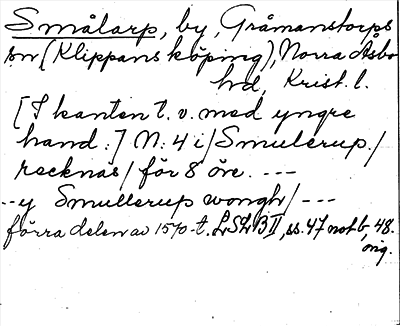 Smålarp, by, Gråmanstorps
sn (Klippans köping), Norra Åsbo
hd, Krist. l.
[I kanten t. v. med yngre
hand:] N: 4 i/Smulerup./
recknäs/ för 8 öre. ---
--y Smullerup wongh/ ---
förra delen av 1570-t. LSLB II, ss. 47 not b, 48.
orig.